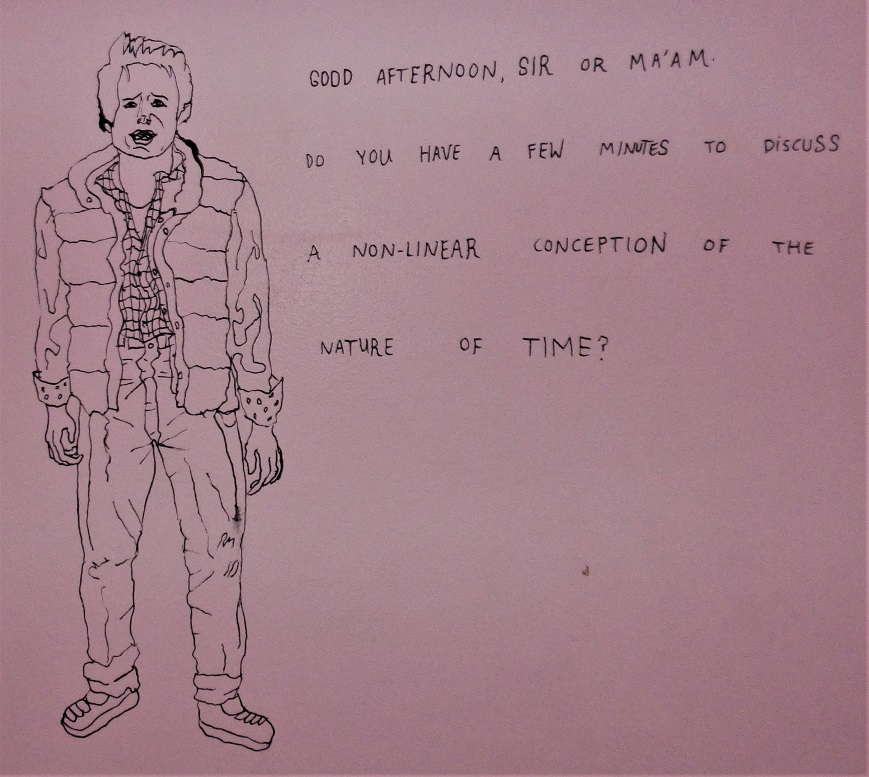 GOOD AFTERNOON, SIR OR MA'AM.
DO YOU HAVE A FEW MINUTES TO DISCUSS
A NON-LINEAR CONCEPTION OF THE
NATURE OF TIME?